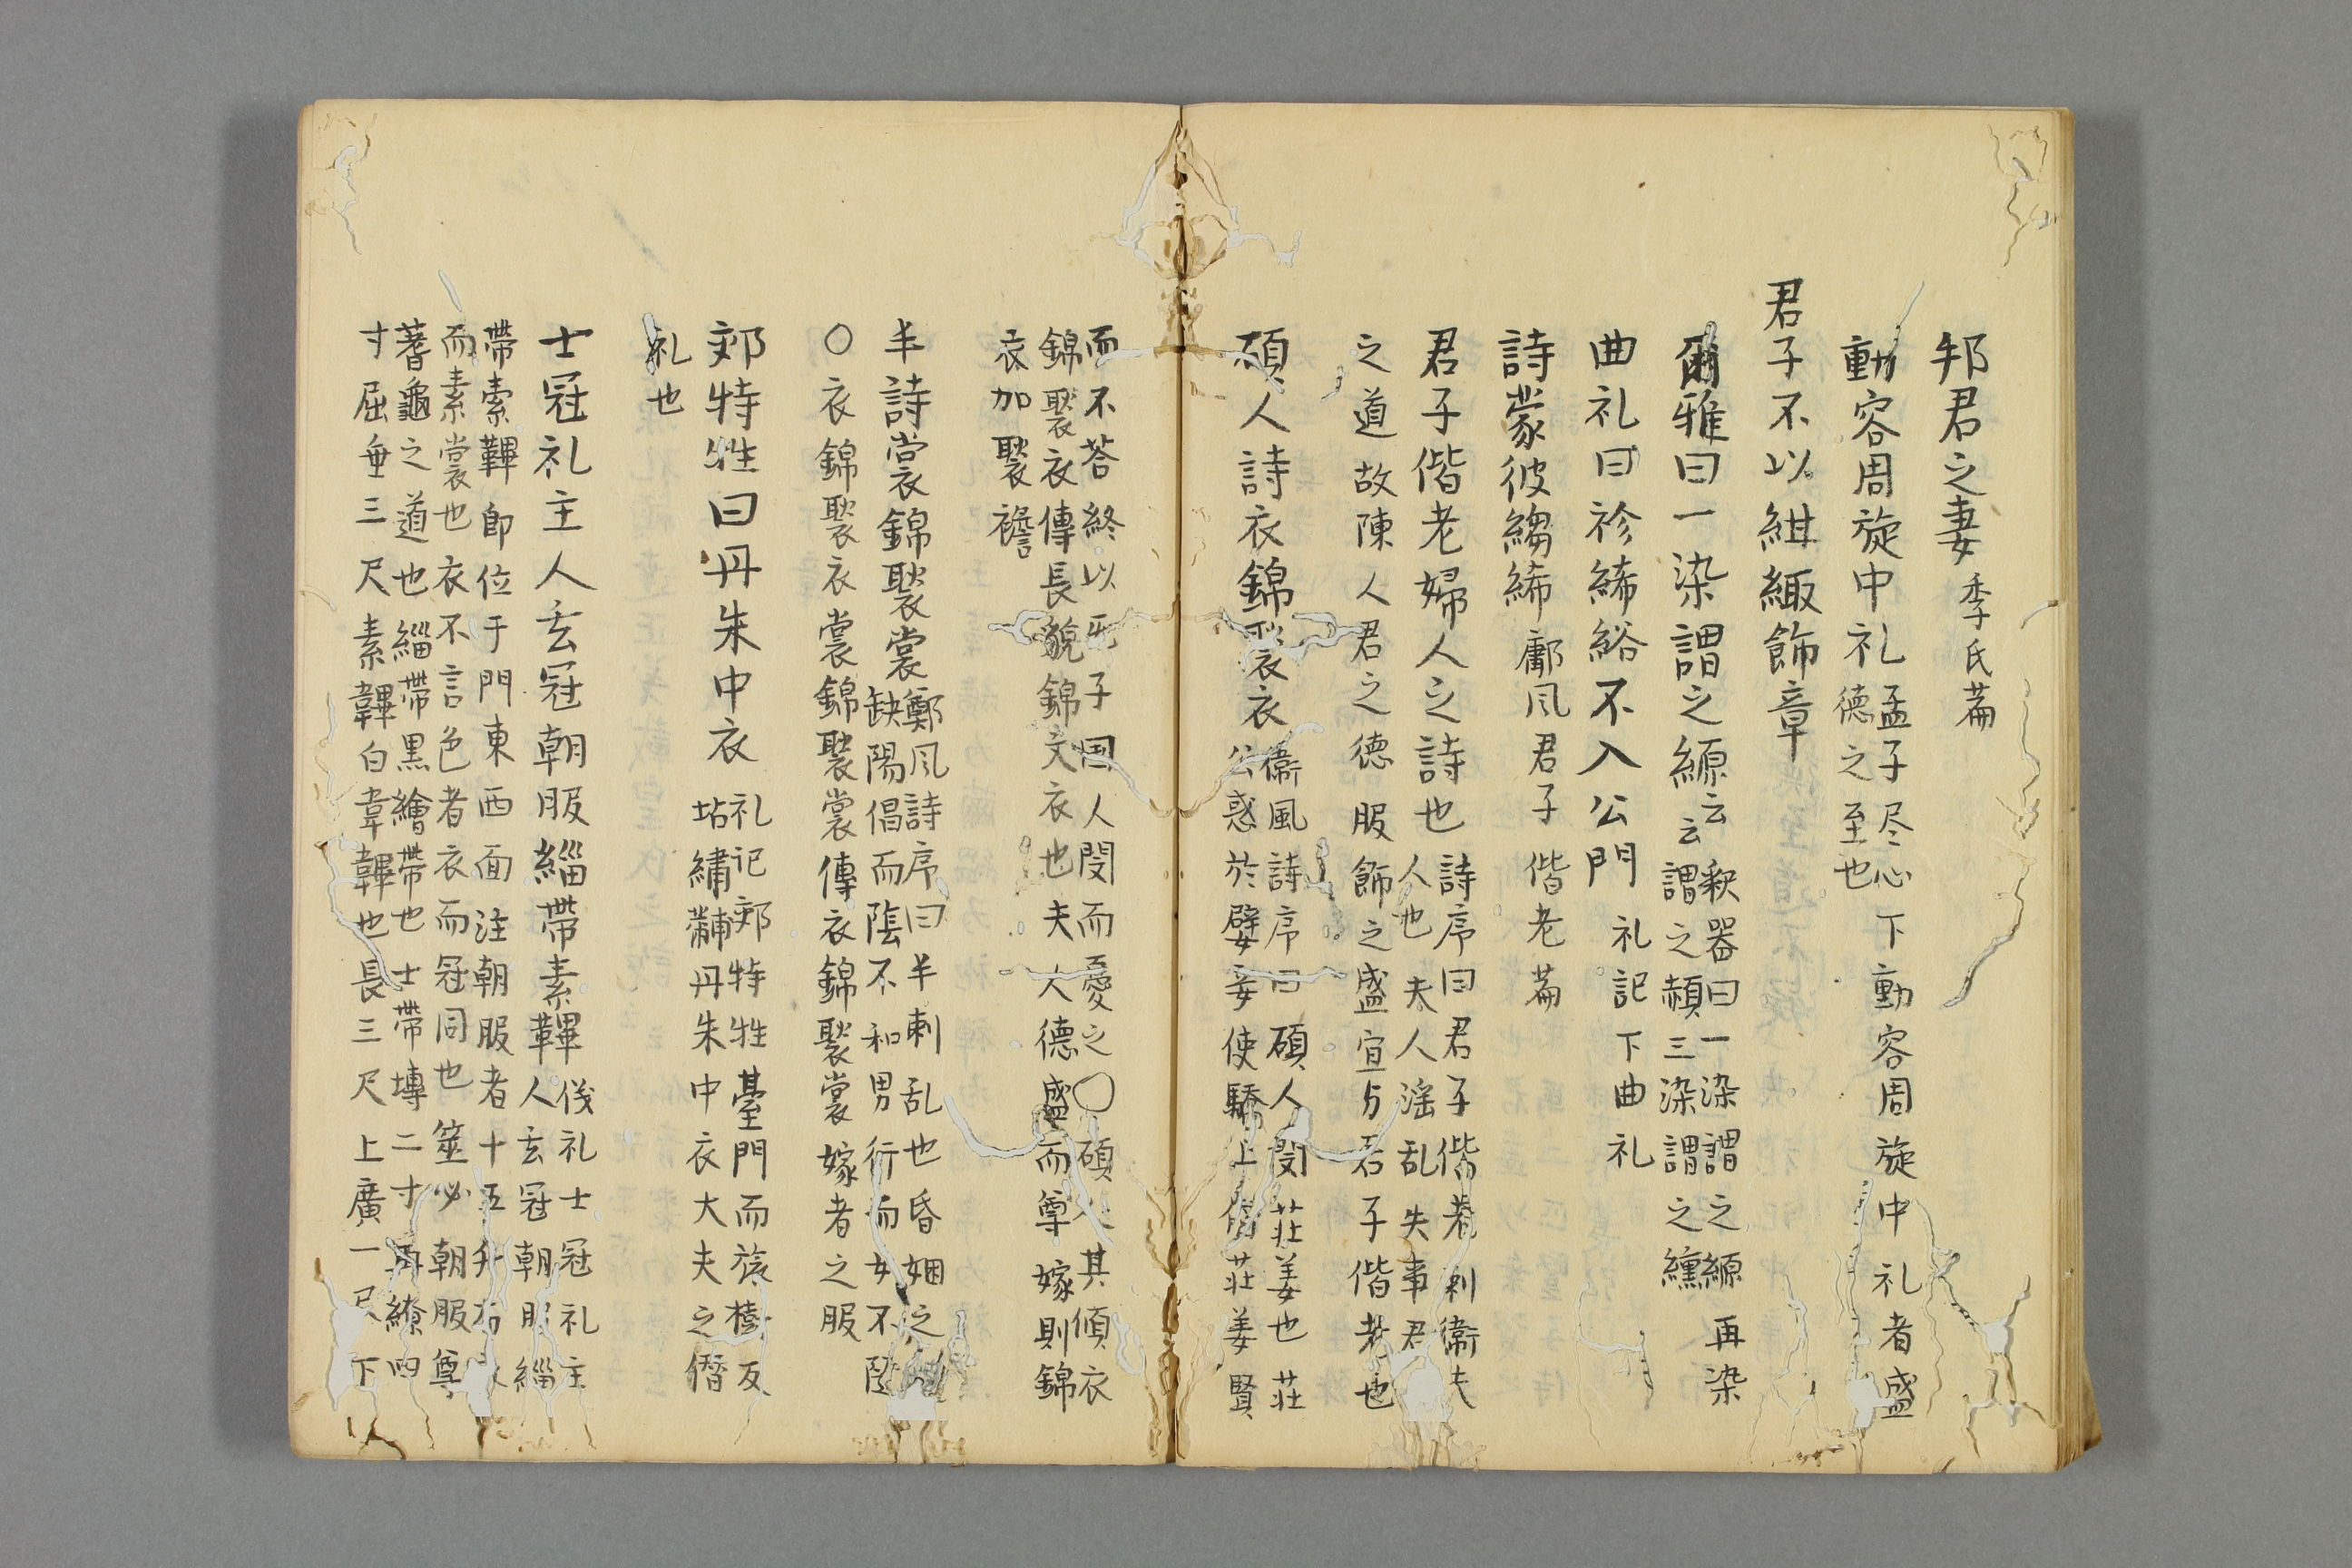 邦君之妻季氏萹
動容周旋中礼孟子尽心下動容周旋中礼者盛
德之至也
君子不以紺緅飾章
爾雅曰一染謂之縓云云釈器曰一染謂之縓再染
謂之赬三染謂之纁
曲礼曰袗絺綌不入公門礼記下曲礼
詩蒙彼縐絺鄘风君子偕老萹
君子偕老婦人之詩也詩序曰君子偕老刺衛夫
人也夫人滛乱失事君
之道故陳人君之德服飾之盛宜与君子偕老也
碩人詩衣錦褧衣衞風詩序曰碩人閔莊姜也莊
公惑於嬖妾使驕上僭莊姜賢
而不荅終以无子国人閔而憂之〇碩人其傾衣
錦褧衣傳長貌錦文衣也夫人德盛而尊嫁則錦
衣加褧襜
丰詩裳衣錦褧裳鄭风詩序曰丰刺乱也昏姻之
缺陽倡而陰不和男行而女不隨
〇衣錦褧衣裳錦褧裳傳衣錦褧裳嫁者之服
郊特牲曰丹朱中衣礼记郊特牲臺門而旅樹反
坫繡黼丹朱中衣大夫之僭
礼也
士冠礼主人玄冠朝服緇带素韠仪礼士冠礼主
人玄冠朝服緇
帶素韠即位于門東西面注朝服者十五升布衣
而素裳也衣不言色者衣而冠同也筮必朝服尊
蓍龜之道也緇帶黒繒帶也士帶塼二寸再繚四
寸屈垂三尺素韠白韋韠也長三尺上廣一尺下